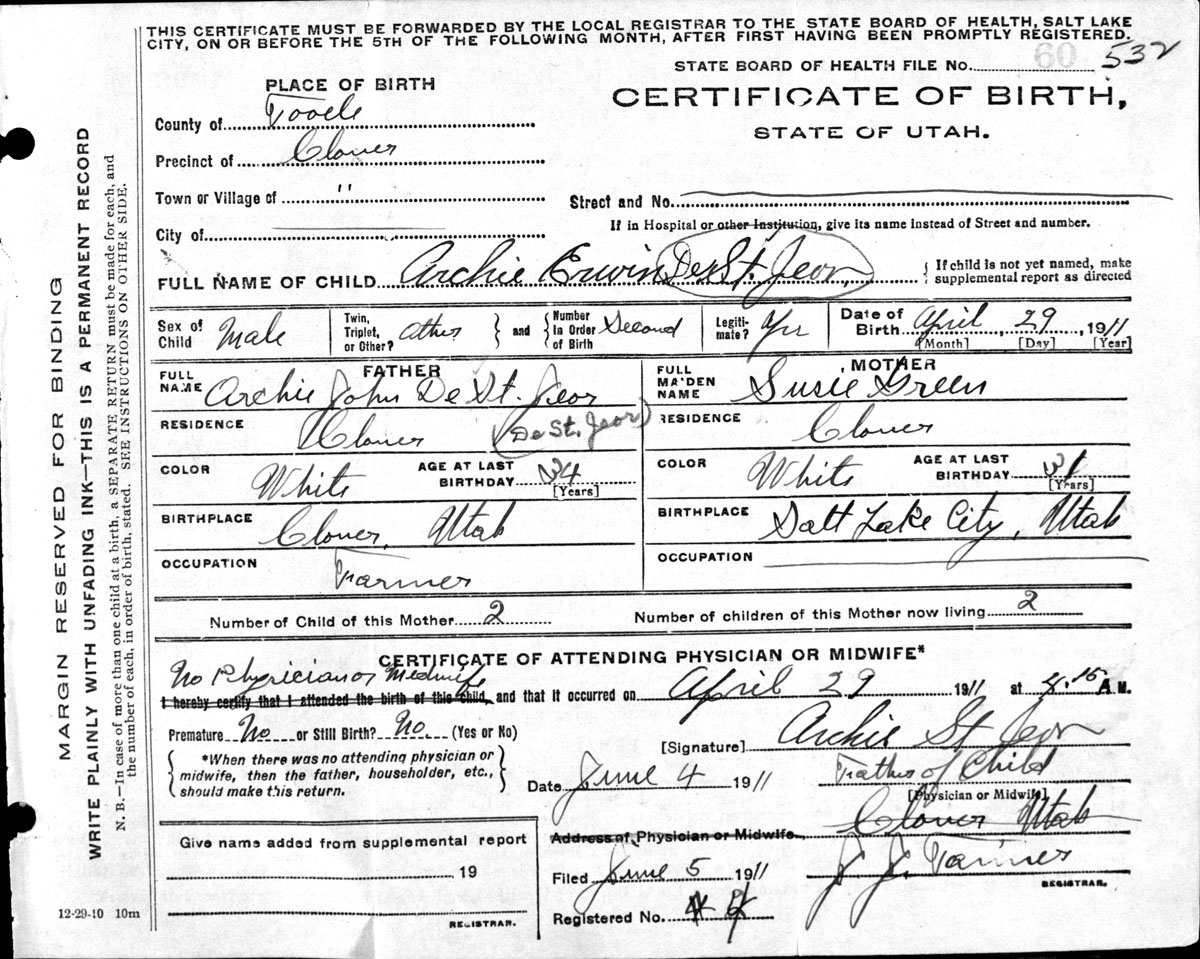 THIS CERTIFICATE MUST BE FORWARDED BY THE LOCAL REGISTRAR TO THE STATE BOARD OF HEALTH, SALT LAKE
CITY, ON OR BEFORE THE 5TH OF THE FOLLOWING MONTH, AFTER FIRST HAVING BEEN PROMPTLY REGISTERED.
STATE BOARD OF HEALTH FILE No. 60 532
PLACE OF BIRTH
CERTIFICATE OF BIRTH,
STATE OF UTAH.
County of Tooele
Precinct of Clover
Town or Village of "
Street and No.
If in Hospital or other Institution, give its name instead of Street and number.
City of
FULL NAME OF CHILD Archie Erwin De St. Jeor
{ If child is not yet named, make
supplemental report as directed
Sex of Child Male
Twin, Triplet, or Other? other } and { Number In Order of Birth Second
Legitimate? yes
Date of Birth April, 29, 1911
[Month] [Day] [Year]
FATHER
FULL NAME Archie John De St. Jeor
MOTHER
FULL MAIDEN NAME Susie Green
RESIDENCE Clover (De St. Jeor)
RESIDENCE Clover
COLOR White AGE AT LAST BIRTHDAY 34 [Years]
COLOR White AGE AT LAST BIRTHDAY 31 [Years]
BIRTHPLACE Clover, Utah
BIRTHPLACE Salt Lake City, Utah
OCCUPATION Farmer
OCCUPATION
Number of Child of this Mother 2 Number of children of this Mother now living 2
CERTIFICATE OF ATTENDING PHYSICIAN OR MIDWIFE*
No Physician or Medwife
I hereby certify that I attended the birth of this child, and that it occurred on April 29 1911 at 8.15 A.M.
Premature No or Still Birth? No. (Yes or No)
[Signature] Archie St Jeor
{ *When there was no attending physician or
midwife, then the father, householder, etc.,
should make this return. }
Date June 4 1911 Father of Child
[Physician or Midwife]
Address of Physician or Midwife Clover Utah
Give name added from supplemental report
19
REGISTRAR.
Filed June 5 1911 J. J. Farmer
REGISTRAR.
Registered No.
12-29-10 10m
MARGIN RESERVED FOR BINDING
WRITE PLAINLY WITH UNFADING INK—THIS IS A PERMANENT RECORD
N. B.—In case of more than one child at a birth, a SEPARATE RETURN must be made for each, and
the number of each, in order of birth, stated. SEE INSTRUCTIONS ON OTHER SIDE.